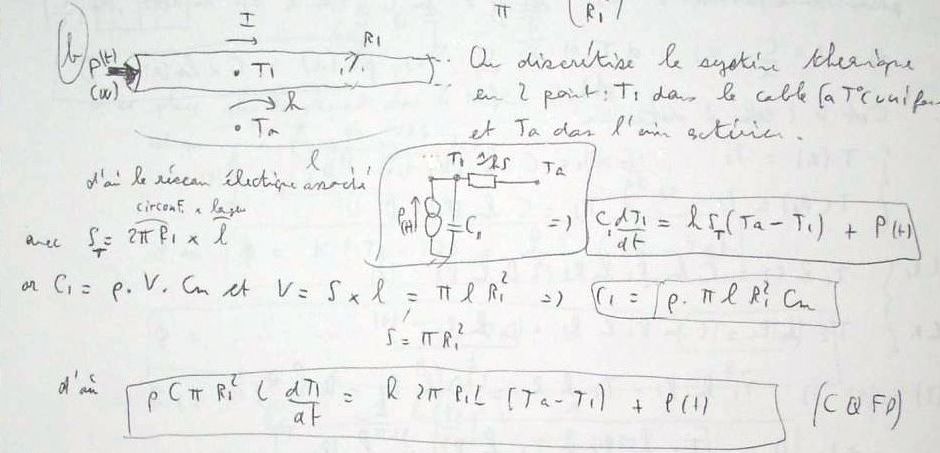 π (R₁)
b) P(t) (W) I R₁ • T₁ h • Ta l
On discrétise le système thermique
en 2 point : T₁ dans le cable (a T° unifor
et Ta dans l'air extérieur.
d'où le réseau électrique associé
T₁ hS Ta P(t) C₁
circonf. x largeur
avec S_T = 2π R₁ x l
=> C₁ dT₁/dt = h S_T (Ta - T₁) + P(t)
or C₁ = ρ. V. Cm et V = S x l = π l R₁² => C₁ = ρ. π l R₁² Cm
S = π R₁²
d'où ρ C π R₁² l dT₁/dt = h 2π R₁ L [Ta - T₁) + P(t) (CQFD)